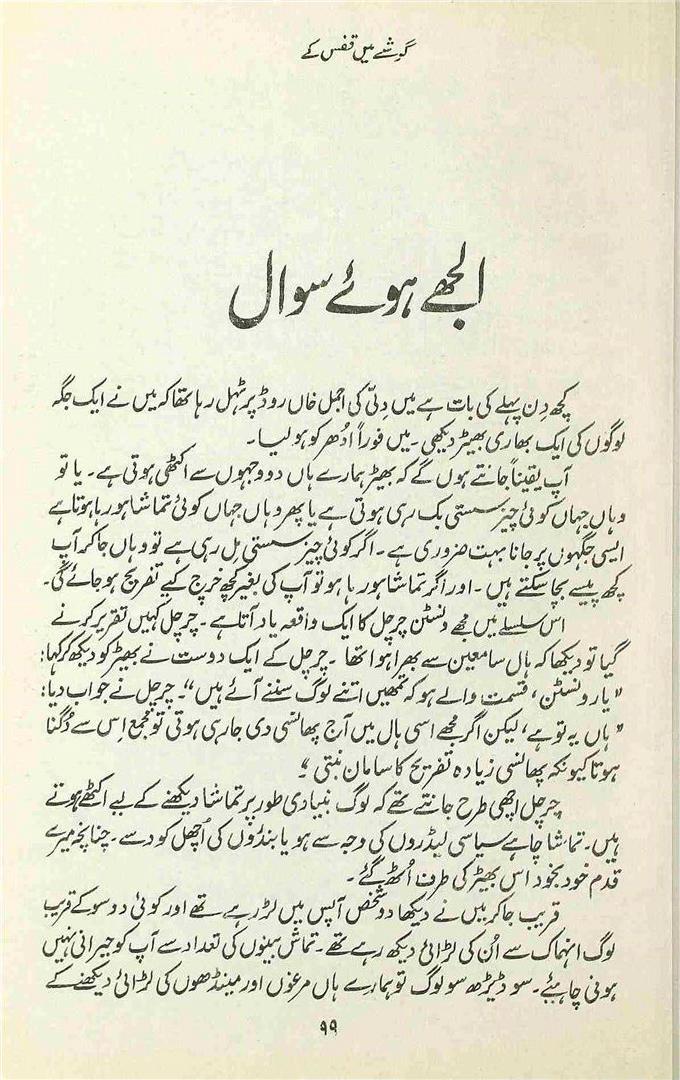 گوشے میں قفس کے
الجھے ہوئے سوال
کچھ دن پہلے کی بات ہے میں دِلّی کی اجمل خاں روڈ پر ٹہل رہا تھا کہ میں نے ایک جگہ
لوگوں کی ایک بھاری بھیڑ دیکھی۔ میں فوراً اُدھر کو ہو لیا۔
آپ یقیناً جانتے ہوں گے کہ بھیڑ ہمارے ہاں دو وجہوں سے اکٹھی ہوتی ہے۔ یا تو
وہاں جہاں کوئی چیز سستی بک رہی ہوتی ہے یا پھر وہاں جہاں کوئی تماشا ہو رہا ہوتا ہے
ایسی جگہوں پر جانا بہت ضروری ہے۔ اگر کوئی چیز سستی مِل رہی ہے تو وہاں جا کر آپ
کچھ پیسے بچا سکتے ہیں۔ اور اگر تماشا ہو رہا ہو تو آپ کی بغیر کچھ خرچ کیے تفریح ہو جائے گی۔
اس سلسلے میں مجھے ونسٹن چرچل کا ایک واقعہ یاد آتا ہے۔ چرچل کہیں تقریر کرنے
گیا تو دیکھا کہ ہال سامعین سے بھرا ہوا تھا۔ چرچل کے ایک دوست نے بھیڑ کو دیکھ کر کہا:
"یار ونسٹن، قسمت والے ہو کہ تمھیں اتنے لوگ سننے آئے ہیں"۔ چرچل نے جواب دیا:
"ہاں یہ تو ہے، لیکن اگر مجھے اسی ہال میں آج پھانسی دی جا رہی ہوتی تو مجمع اِس سے دُگنا
ہوتا کیونکہ پھانسی زیادہ تفریح کا سامان بنتی"۔
چرچل اچھی طرح جانتے تھے کہ لوگ بنیادی طور پر تماشا دیکھنے کے لیے اکٹھے ہوتے
ہیں۔ تماشا چاہے سیاسی لیڈروں کی وجہ سے ہو یا بندروں کی اُچھل کود سے۔ چنانچہ میرے
قدم خود بخود اس بھیڑ کی طرف اُٹھ گئے۔
قریب جا کر میں نے دیکھا دو شخص آپس میں لڑ رہے تھے اور کوئی دو سو کے قریب
لوگ انہماک سے اُن کی لڑائی دیکھ رہے تھے۔ تماش بینوں کی تعداد سے آپ کو حیرانی نہیں
ہونی چاہیئے۔ سو ڈیڑھ سو لوگ تو ہمارے ہاں مرغوں اور مینڈھوں کی لڑائی دیکھنے کے
۹۹